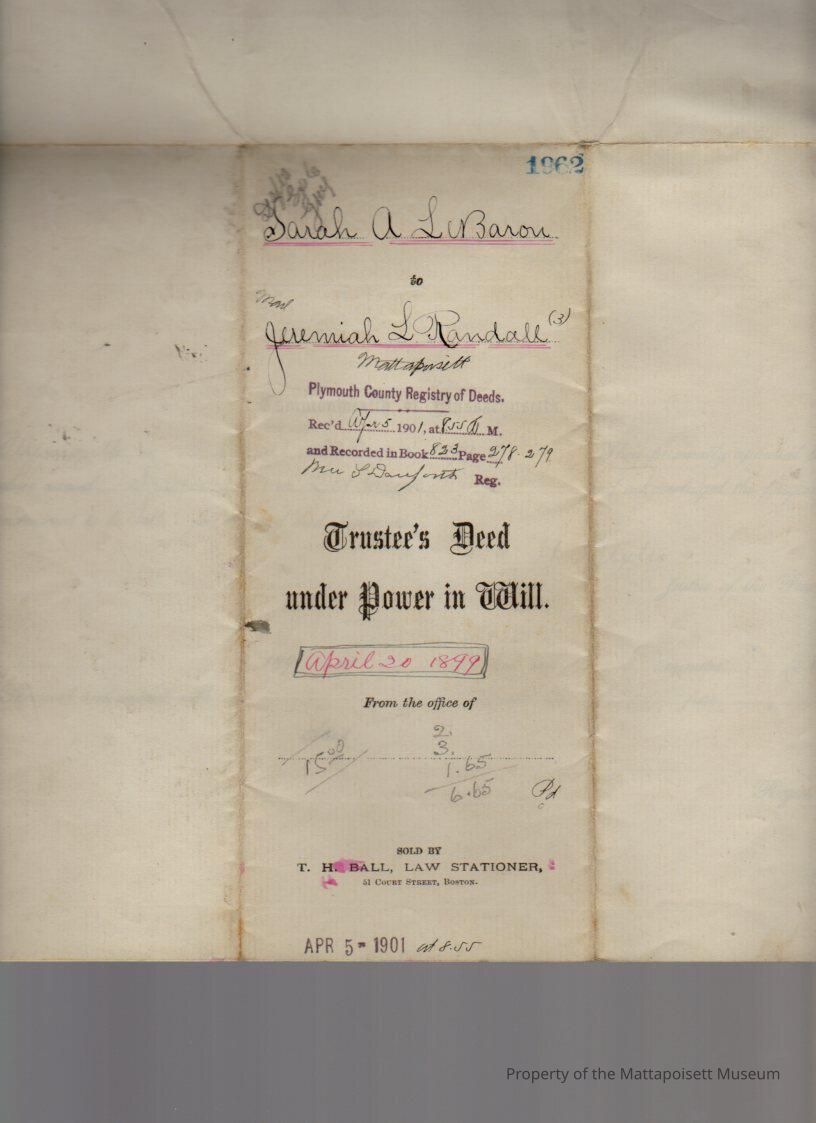 1962
Sarah A LeBaron
to
Jeremiah L Randall (3)
Mattapoisett
Plymouth County Registry of Deeds.
Rec'd Apr 5 1901, at 8.55 A M.
and Recorded in Book 823 Page 278-279
Reg.
Trustee's Deed
under Power in Will.
April 20 1899
From the office of
2.
3.
15 00 1.65
6.65 Pd
SOLD BY
T. H. BALL, LAW STATIONER,
51 COURT STREET, BOSTON.
APR 5 - 1901 at 8.55
Property of the Mattapoisett Museum